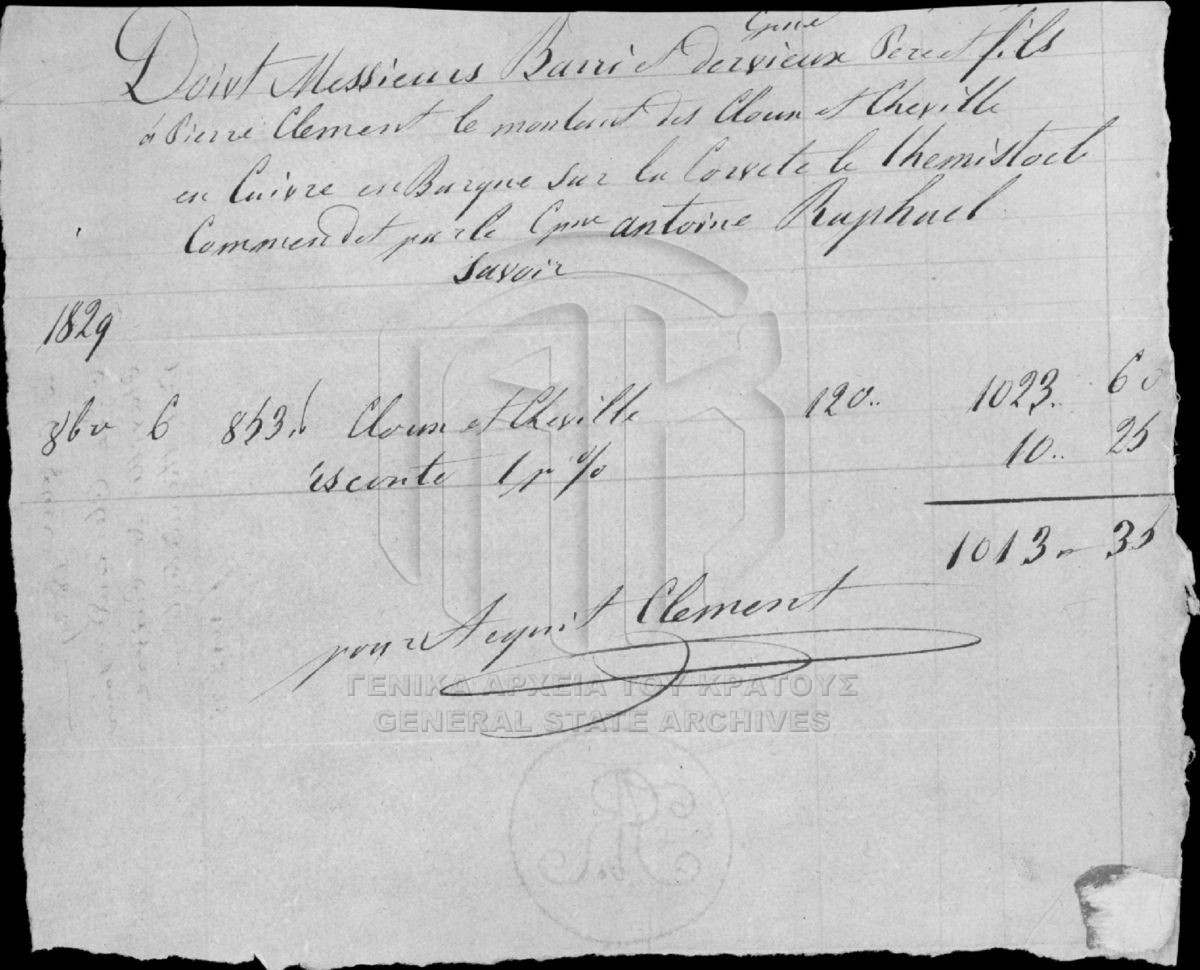 Cpnie
Doivt Messieurs Barri et dervieux Pere et fils
à Pierre Clement le montant des Cloux et Cheville
en Cuivre en Barque sur la Corvete le themistocle
Commendet par le Cpne antoine Raphael
Savoir
1829
8bre 6 853 Cloux et Cheville 120.. 1023.. 60
esconte 1 p % 10.. 25
1013 35
pour Acquit Clement
ΓΕΝΙΚΑ ΑΡΧΕΙΑ ΤΟΥ ΚΡΑΤΟΥΣ
GENERAL STATE ARCHIVES